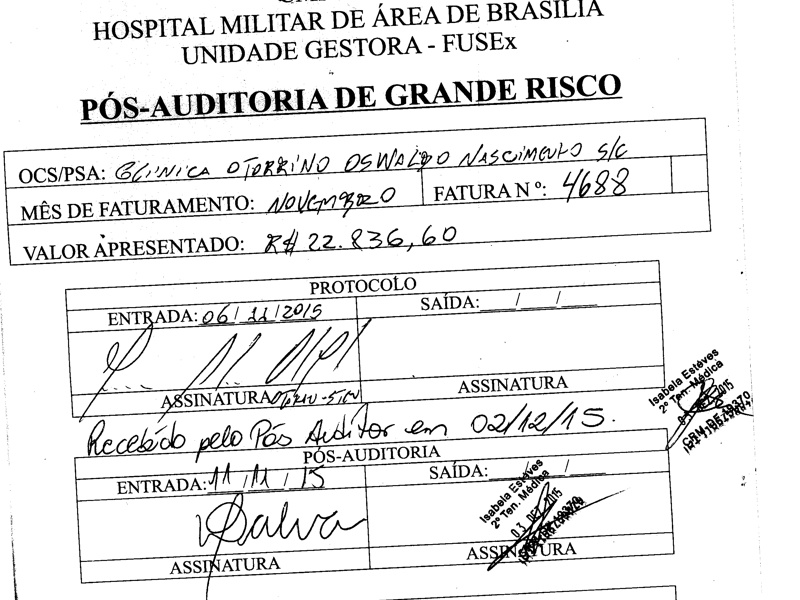 HOSPITAL MILITAR DE ÁREA DE BRASÍLIA
UNIDADE GESTORA - FUSEx
PÓS-AUDITORIA DE GRANDE RISCO
OCS/PSA: CLÍNICA OTORRINO OSWALDO NASCIMENTO S/C
MÊS DE FATURAMENTO: NOVEMBRO FATURA Nº: 4688
VALOR APRESENTADO: R$ 22.836,60
PROTOCOLO
ENTRADA: 06/11/2015 SAÍDA: / /
ASSINATURA ASSINATURA
Recebido pelo Pós Auditor em 02/12/15.
Isabela Estéves
2º Ten. Médica
PÓS-AUDITORIA
ENTRADA: 11/11/15 SAÍDA: / /
Isabela Estéves
2º Ten. Médica
03 DEZ 2015
ASSINATURA ASSINATURA